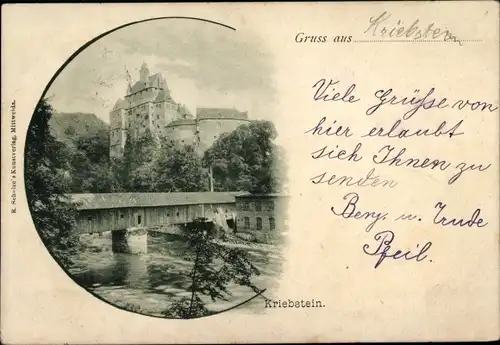 Gruss aus Kriebstein
Viele Grüße von
hier erlaubt
sich Ihnen zu
senden
u. Trude
Pfeil.
Kriebstein.
Kunstverlag, Mittweida.